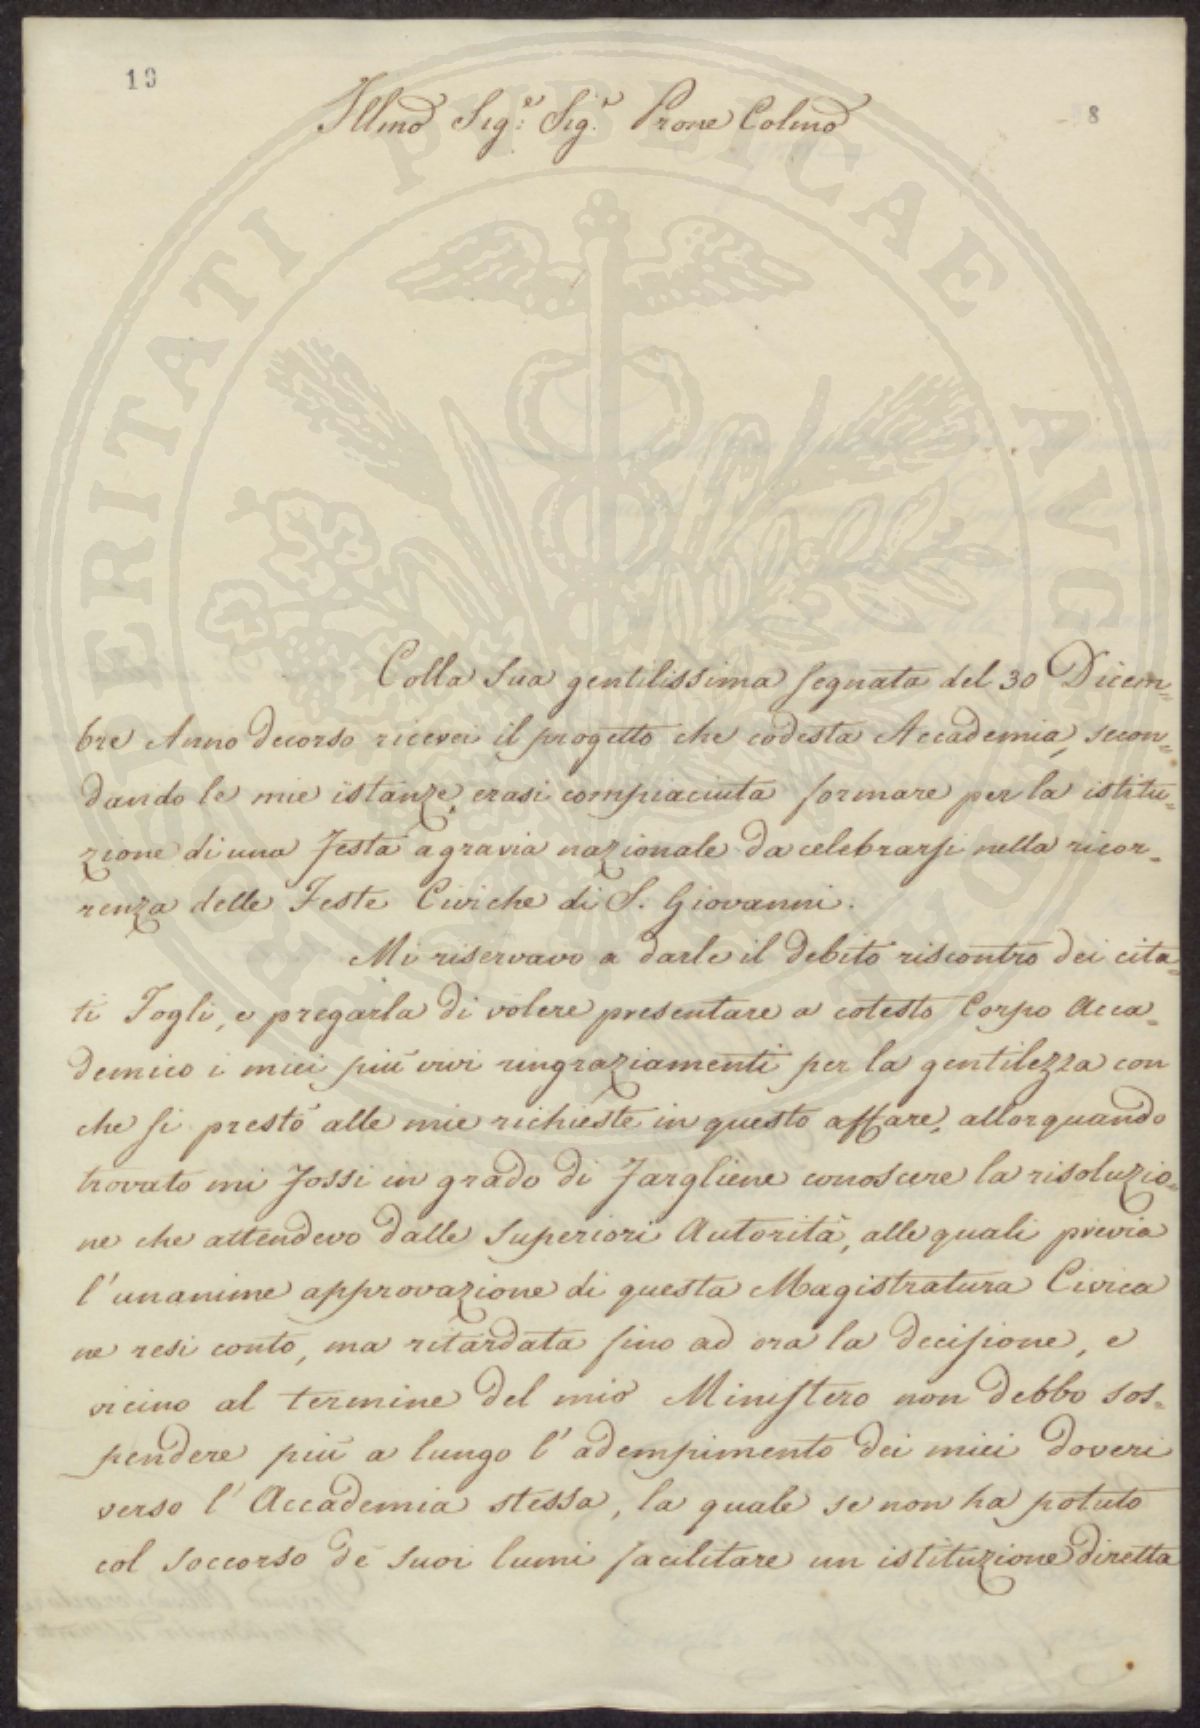 19
8
Illmo Sig.e Sig.r Prone Colmo
Colla Sua gentilissima segnata del 30 Dicem=
bre Anno decorso ricevei il progetto che codesta Accademia, secon=
dando le mie istanze, erasi compiaciuta formare per la istitu=
zione di una Festa agraria nazionale da celebrarsi nella ricor=
renza delle Feste Civiche di S. Giovanni.
Mi riservavo a darle il debito riscontro dei cita=
ti Fogli, e pregarla di volere presentare a cotesto Corpo Acca=
demico i miei più vivi ringraziamenti per la gentilezza con
che si prestò alle mie richieste in questo affare, allorquando
trovato mi fossi in grado di fargliene conoscere la risoluzio=
ne che attendevo dalle Superiori Autorità, alle quali previa
l'unanime approvazione di questa Magistratura Civica
ne resi conto, ma ritardata sino ad ora la decisione, e
vicino al termine del mio Ministero non debbo sos=
pendere più a lungo l'adempimento dei miei doveri
verso l'Accademia stessa, la quale se non ha potuto
col soccorso de suoi lumi facilitare un istituzione diretta
PROSPERITATI PVBLICAE AVGENDAE